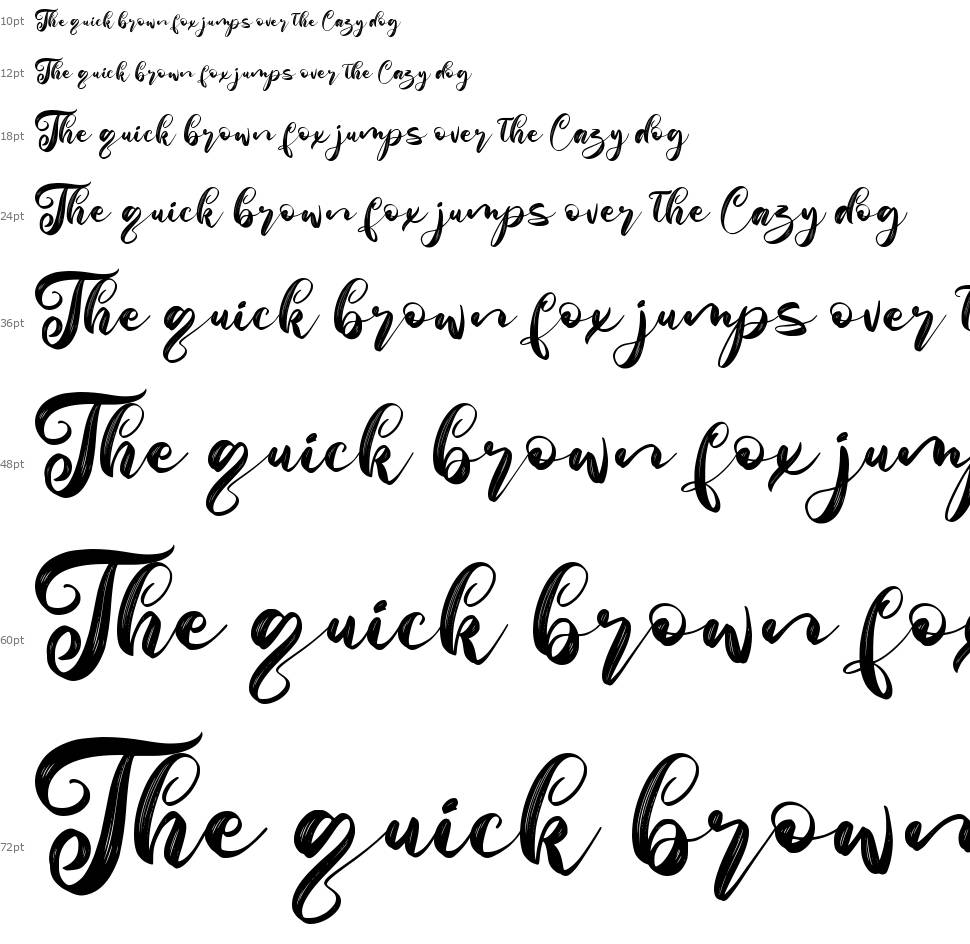 10pt The quick brown fox jumps over the Cazy dog
12pt The quick brown fox jumps over the Cazy dog
18pt The quick brown fox jumps over the Cazy dog
24pt The quick brown fox jumps over the Cazy dog
36pt The quick brown fox jumps over t
48pt The quick brown fox jum
60pt The quick brown fox
72pt The quick brown